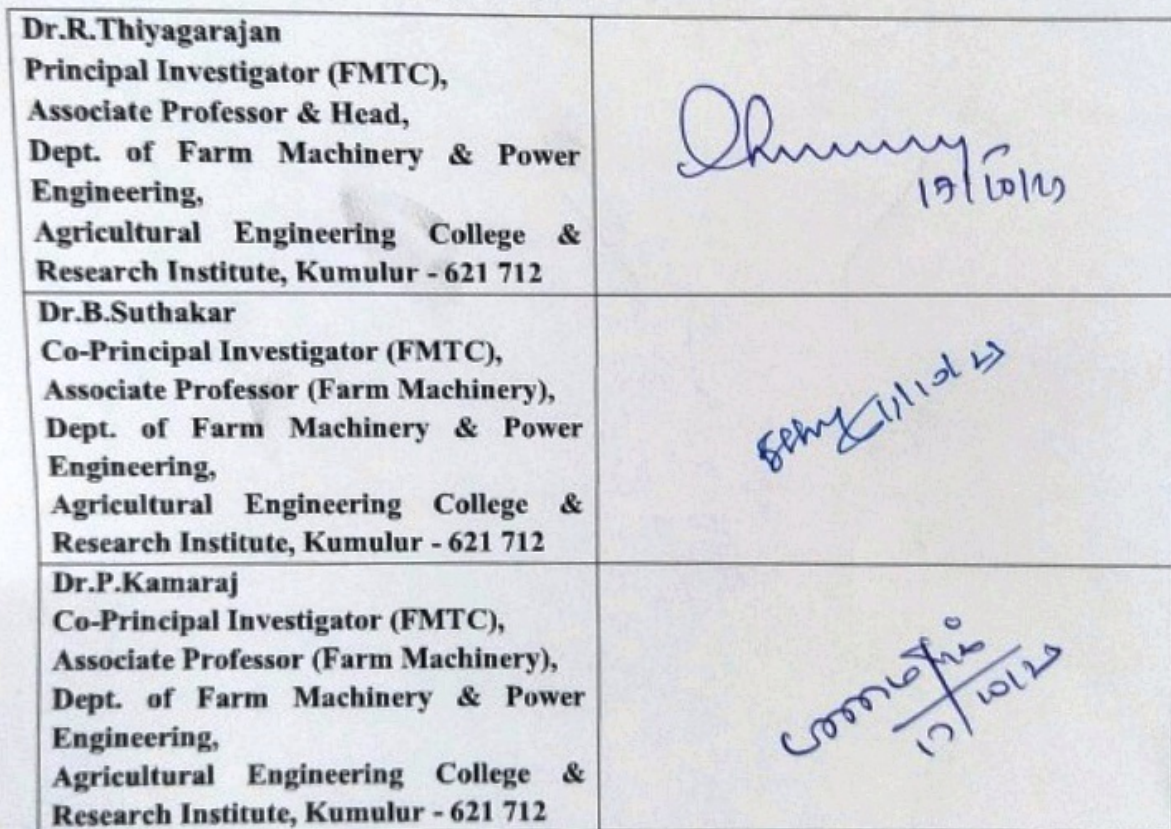 Dr.R.Thiyagarajan
Principal Investigator (FMTC),
Associate Professor & Head,
Dept. of Farm Machinery & Power
Engineering,
Agricultural Engineering College &
Research Institute, Kumulur - 621 712
Dr.B.Suthakar
Co-Principal Investigator (FMTC),
Associate Professor (Farm Machinery),
Dept. of Farm Machinery & Power
Engineering,
Agricultural Engineering College &
Research Institute, Kumulur - 621 712
Dr.P.Kamaraj
Co-Principal Investigator (FMTC),
Associate Professor (Farm Machinery),
Dept. of Farm Machinery & Power
Engineering,
Agricultural Engineering College &
Research Institute, Kumulur - 621 712